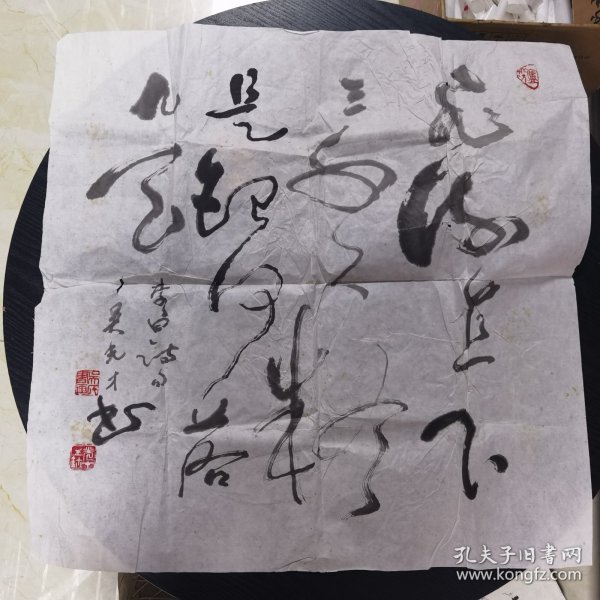 飞流直下
三千尺疑
是银河落
九天
李白诗句
吴光才书
孔夫子旧书网
www.kongfz.com